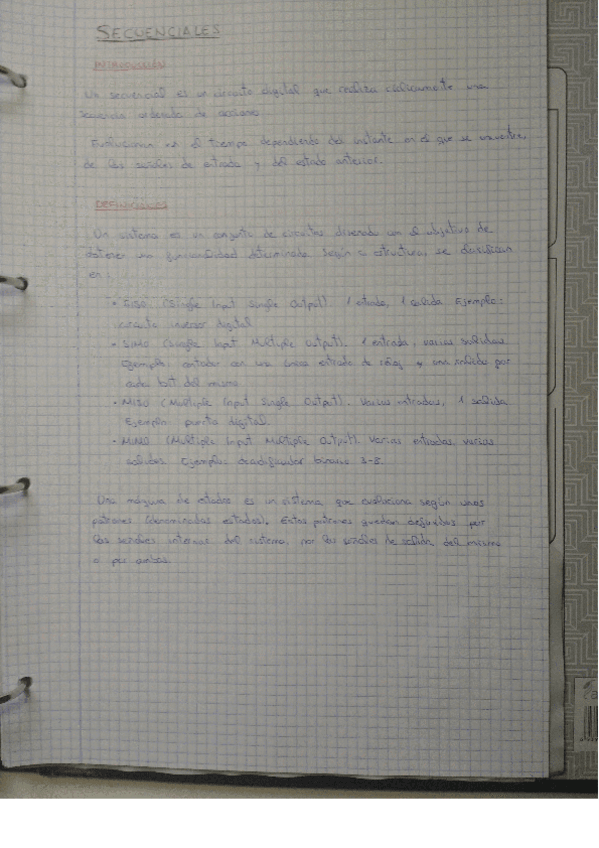 SECUENCIALES
INTRODUCCIÓN
Un secuencial es un circuito digital que realiza cíclicamente una
secuencia ordenada de acciones.
Evolucionan en el tiempo dependiendo del instante en el que se encuentre,
de las señales de entrada y del estado anterior.
DEFINICIONES
Un sistema es un conjunto de circuitos diseñado con el objetivo de
obtener una funcionalidad determinada. Según su estructura se clasifican
en:
• SISO (Single Input Single Output). 1 entrada, 1 salida. Ejemplo:
circuito inversor digital
• SIMO (Single Input Multiple Output). 1 entrada, varias salidas.
Ejemplo: contador con una única entrada de reloj y una salida por
cada bit del mismo
• MISO (Multiple Input Single Output). Varias entradas, 1 salida.
Ejemplo: puerta digital.
• MIMO (Multiple Input Multiple Output). Varias entradas, varias
salidas. Ejemplo: decodificador binario 3-8.
Una máquina de estados es un sistema que evoluciona según unos
patrones (denominados estados). Estos patrones quedan definidos por
las señales internas del sistema, por las señales de salida del mismo
o por ambas.